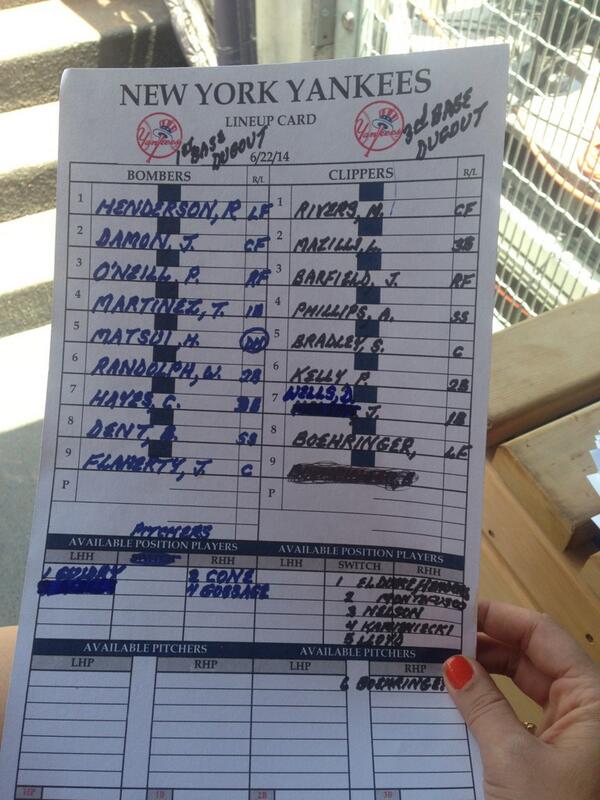 NEW YORK YANKEES
LINEUP CARD
Yankees
Yankees
1st BASE DUGOUT
3rd BASE DUGOUT
6/22/14
BOMBERS R/L CLIPPERS R/L
1 HENDERSON, R. LF 1 RIVERS, M. CF
2 DAMON, J. CF 2 MAZILLI, L. 3B
3 O'NEILL, P. RF 3 BARFIELD, J. RF
4 MARTINEZ, T. 1B 4 PHILLIPS, A. SS
5 MATSUI, H. DH 5 BRADLEY, S. C
6 RANDOLPH, W. 2B 6 KELLY, P. 2B
7 HAYES, C. 3B 7 WELLS, D. J. 1B
8 DENT, B. SS 8 BOEHRINGER, LF
9 FLAHERTY, J. C 9
P P
PITCHERS
AVAILABLE POSITION PLAYERS AVAILABLE POSITION PLAYERS
LHH RHH LHH SWITCH RHH
1 GUIDRY 3 CONE 1 EL DUQUE/
4 GOSSAGE 2 MONTEFUSCO
3 NELSON
4 KAMIENIECKI
5 LLOYD
AVAILABLE PITCHERS AVAILABLE PITCHERS
LHP RHP LHP RHP
6 BOEHRINGER
HP 1B 2B 3B